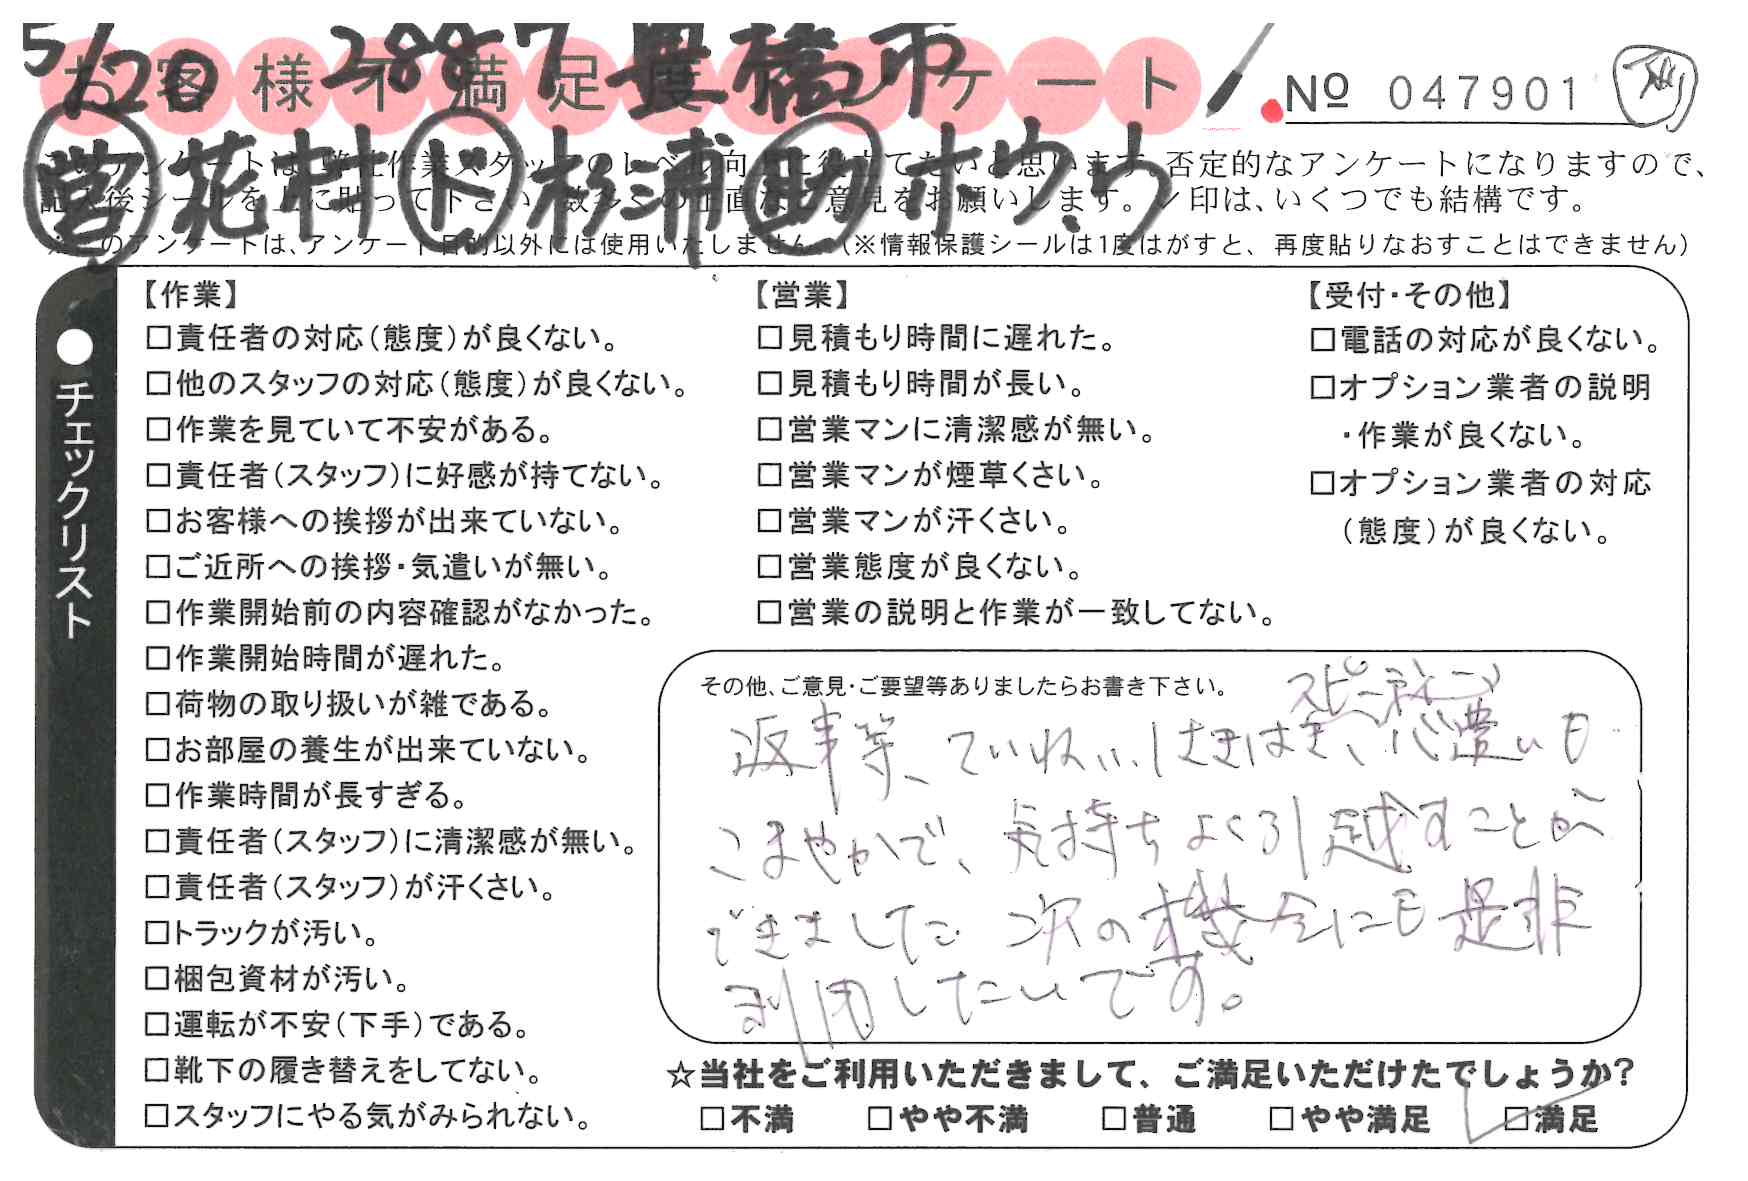 5/20 2887 豊橋市
お客様不満足度アンケート
№ 047901
営 花村 ド 杉浦 助 ホウ、ウ
このアンケートは、弊社作業スタッフのレベル向上に役立てたいと思います。否定的なアンケートになりますので、
記入後シールを上に貼って下さい。数多くの正直なご意見をお願いします。✓印は、いくつでも結構です。
※このアンケートは、アンケート目的以外には使用いたしません。(※情報保護シールは1度はがすと、再度貼りなおすことはできません)
●チェックリスト
【作業】
□責任者の対応(態度)が良くない。
□他のスタッフの対応(態度)が良くない。
□作業を見ていて不安がある。
□責任者(スタッフ)に好感が持てない。
□お客様への挨拶が出来ていない。
□ご近所への挨拶・気遣いが無い。
□作業開始前の内容確認がなかった。
□作業開始時間が遅れた。
□荷物の取り扱いが雑である。
□お部屋の養生が出来ていない。
□作業時間が長すぎる。
□責任者(スタッフ)に清潔感が無い。
□責任者(スタッフ)が汗くさい。
□トラックが汚い。
□梱包資材が汚い。
□運転が不安(下手)である。
□靴下の履き替えをしてない。
□スタッフにやる気がみられない。
【営業】
□見積もり時間に遅れた。
□見積もり時間が長い。
□営業マンに清潔感が無い。
□営業マンが煙草くさい。
□営業マンが汗くさい。
□営業態度が良くない。
□営業の説明と作業が一致してない。
【受付・その他】
□電話の対応が良くない。
□オプション業者の説明
・作業が良くない。
□オプション業者の対応
(態度)が良くない。
その他、ご意見・ご要望等ありましたらお書き下さい。
スピーディーで
返事等、ていねい、はきはき、心遣いも
こまやかで、気持ちよく引越すことが
できました。次の機会にも是非
利用したいです。
☆当社をご利用いただきまして、ご満足いただけたでしょうか?
□不満 □やや不満 □普通 □やや満足 □満足